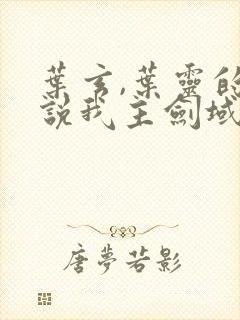 葉玄,葉靈的
說我主劍域
唐夢若影